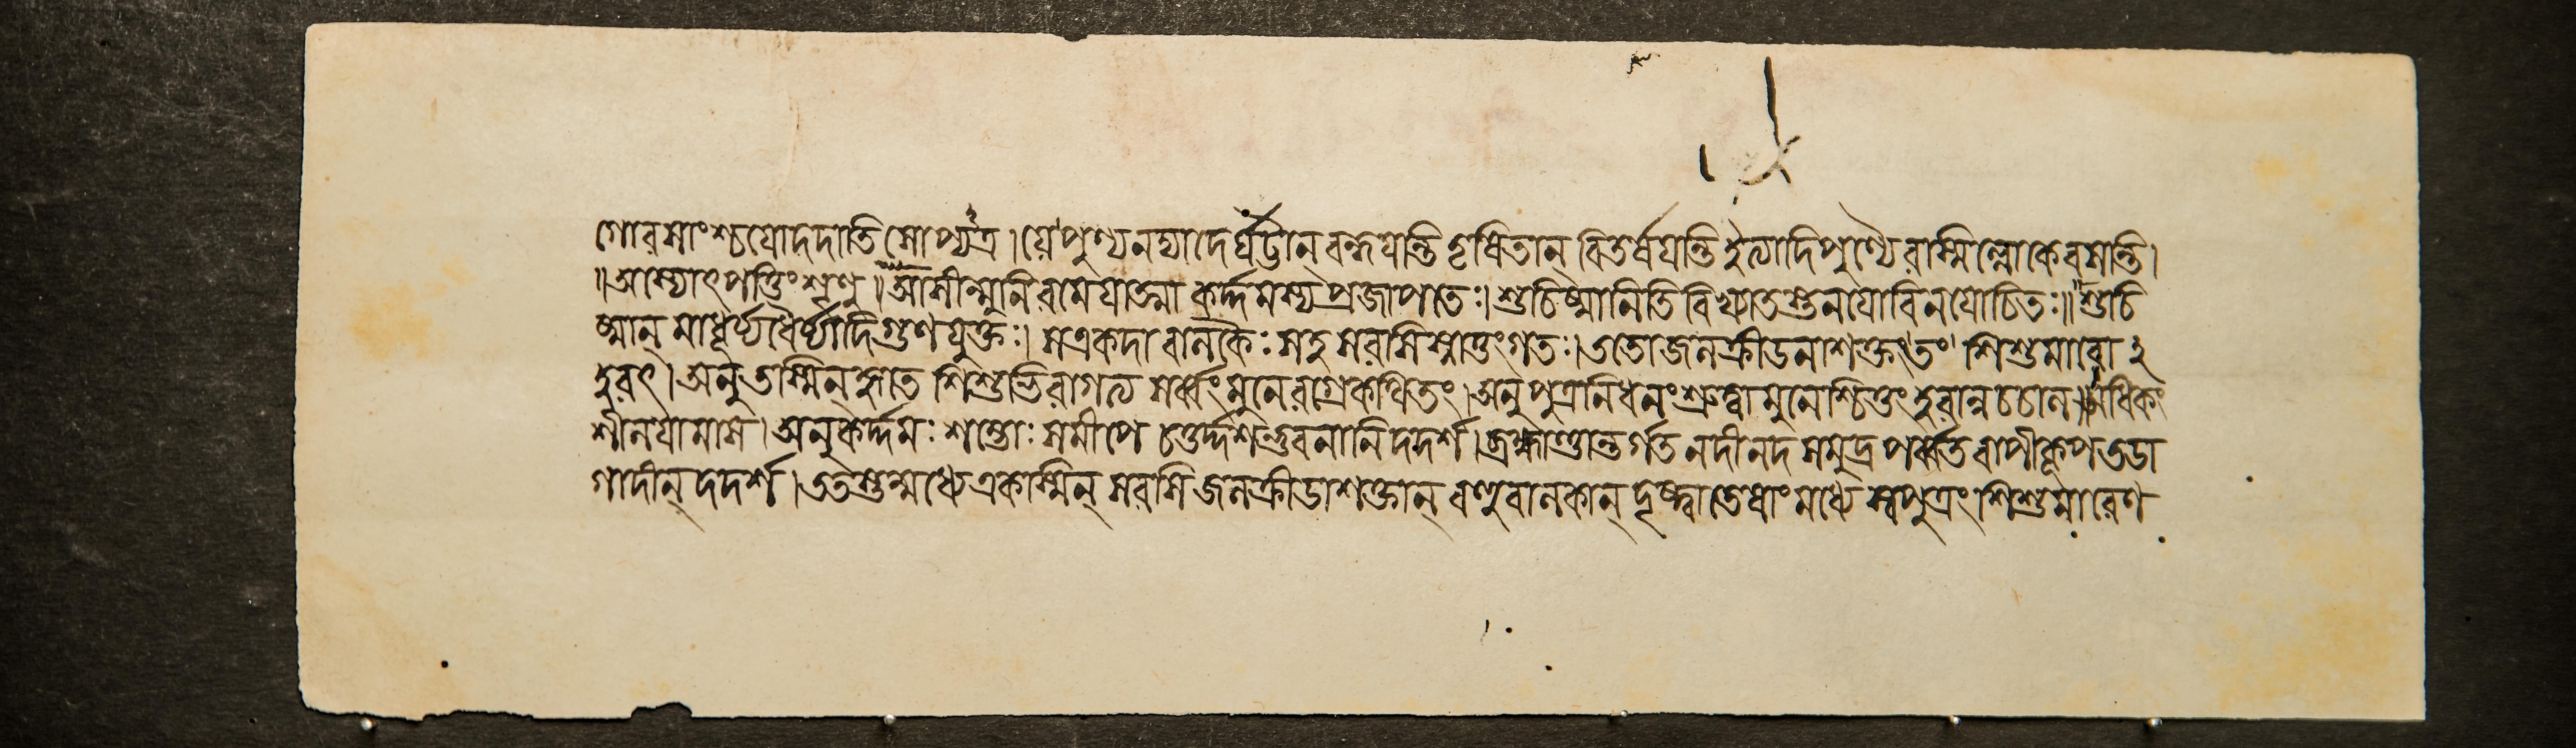 গোরসাংশ্চ যো দদাতি সোপ্যত্র । যে পুণ্যনদ্যাদের্ঘট্টান্ বন্ধযন্তি তৃষিতান্ বিতর্ষযন্তি ইত্যাদিপুণ্যৈরস্মিল্লোকে বসন্তি ।
॥ অস্যোৎপত্তিং শৃণু ॥ আসীন্মুনিরমেযাত্মা কর্দ্দমস্য প্রজাপতেঃ । শুচিষ্মানিতি বিখ্যাতস্তনযো বিনযোচিতঃ ॥ শুচি
ষ্মান্ মাধুর্য্যধৈর্য্যাদিগুণযুক্তঃ । স একদা বালকৈঃ সহ সরসি স্নাতুং গতঃ । ততো জলক্রীডনাশক্তং তং শিশুমারো ঽ
হরৎ । অনু তস্মিন্ হৃতে শিশুভিরাগত্য সর্ব্বং মুনেরগ্রে কথিতং । অনু পুত্রনিধনং শ্রুত্বা মুনেশ্চিত্তং হরান্ন চচাল । অধিকং
শীলযামাস । অনু কর্দ্দমঃ শম্ভোঃ সমীপে চতুর্দ্দশভুবনানি দদর্শ । ব্রহ্মাণ্ডান্তর্গত নদীনদসমুদ্রপর্ব্বতবাপীকূপতডা
গাদীন্ দদর্শ । ততস্তন্মধ্যে একস্মিন্ সরসি জলক্রীডাশক্তান্ বহুবালকান্ দৃষ্ট্বা তেষাং মধ্যে স্বপুত্রং শিশুমারেণ